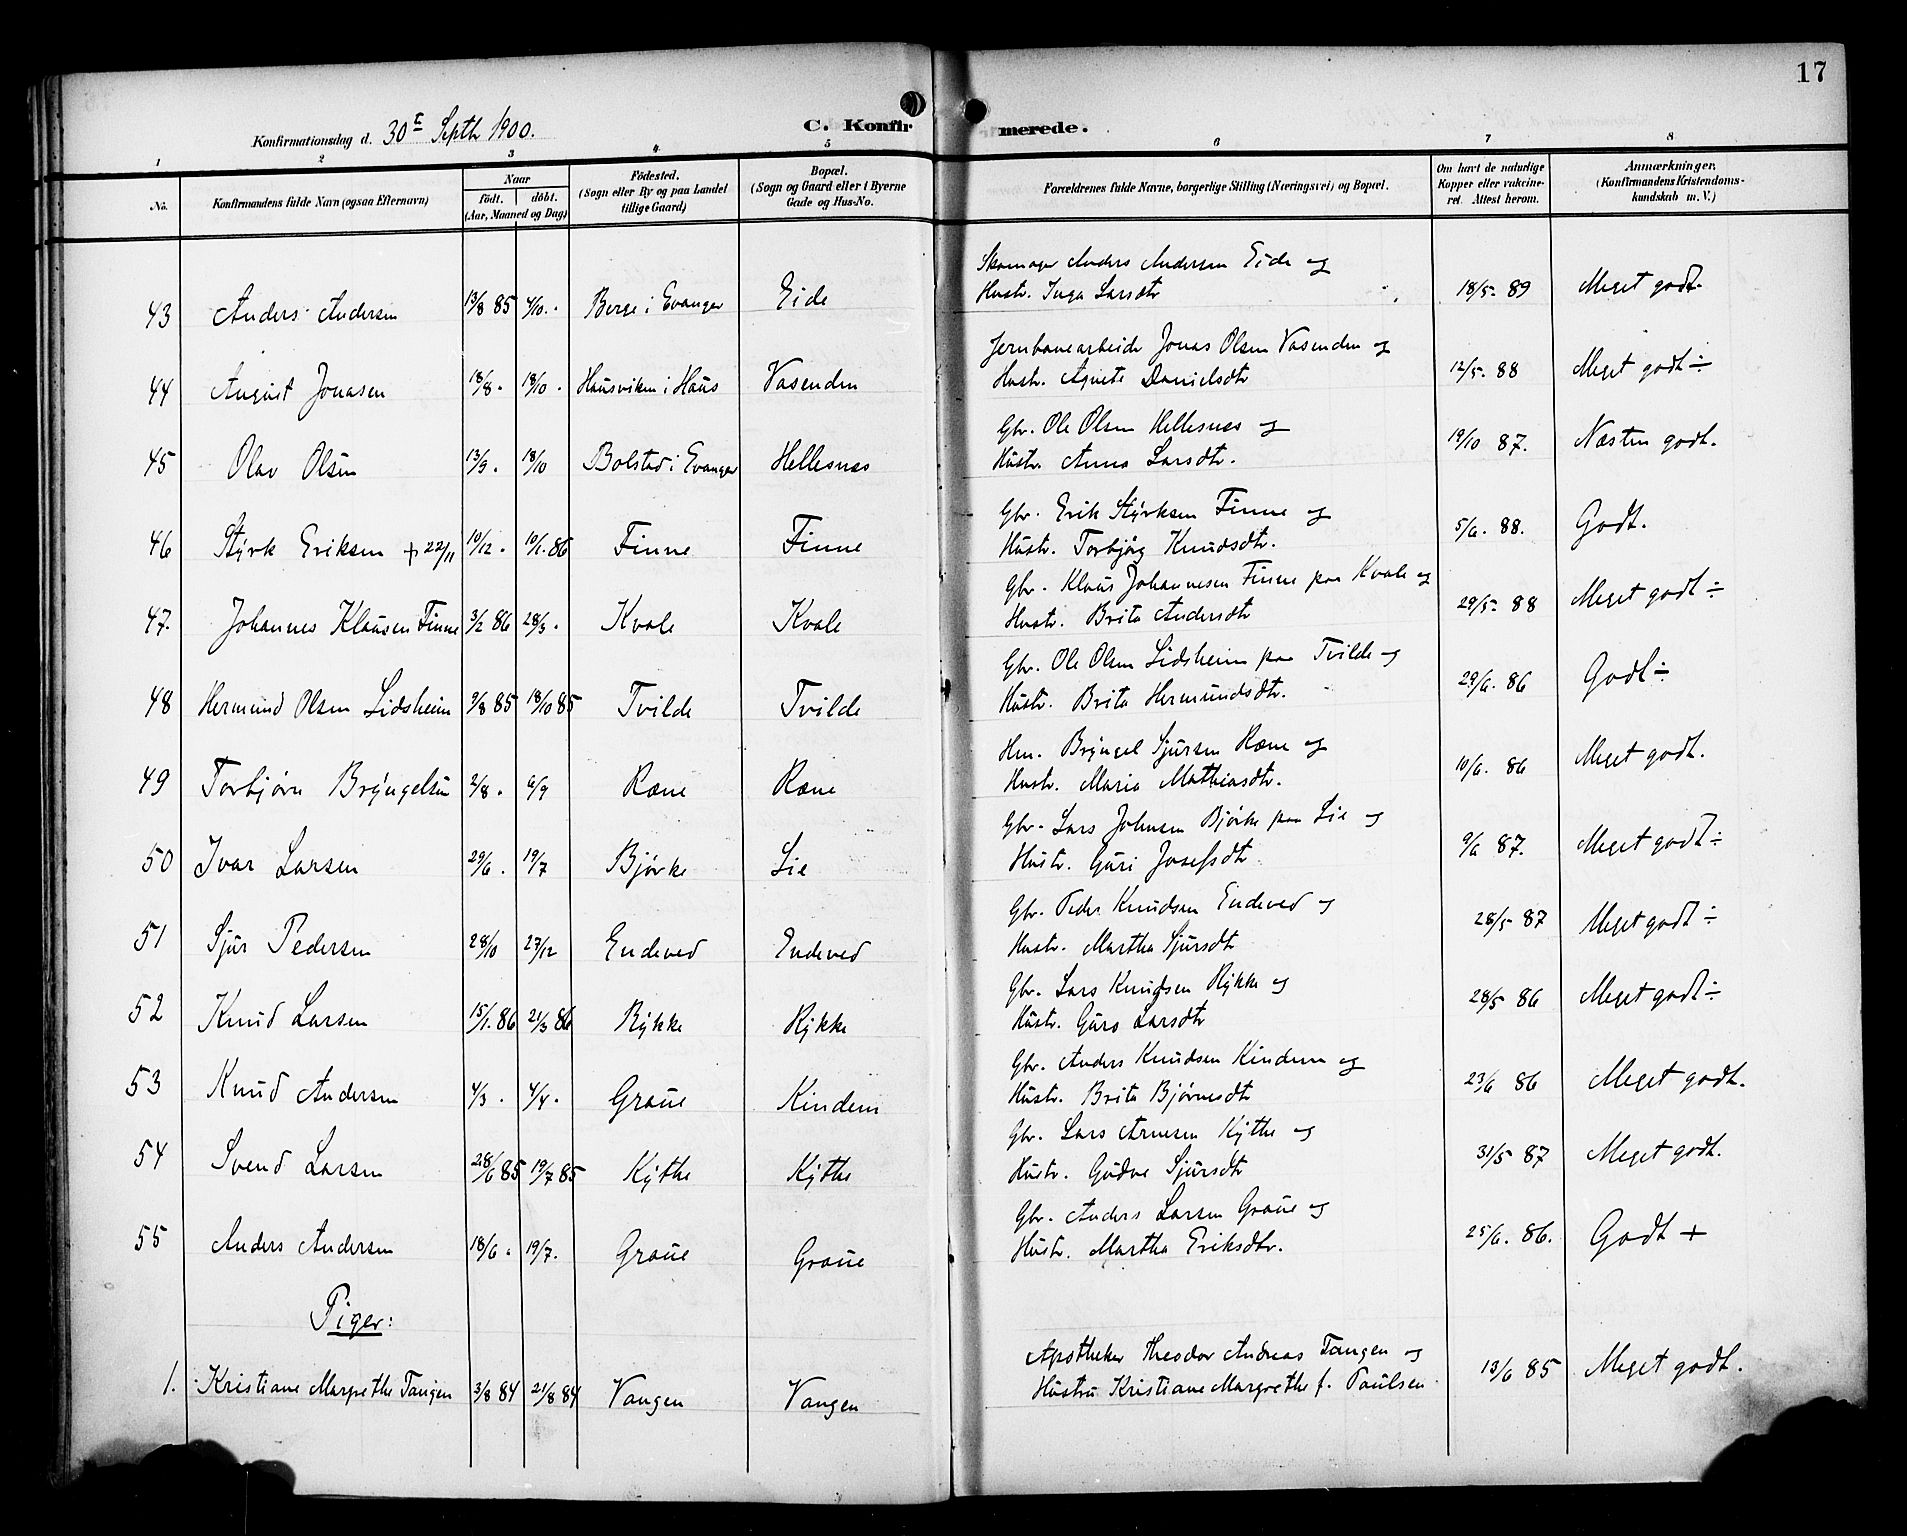 17
Konfirmationsdag d. 30te Septbr 1900.
C. Konfirmerede.
1 2 3 4 5 6 7 8
No.
Konfirmandens fulde Navn (ogsaa Efternavn)
Naar
født. døbt.
(Aar, Maaned og Dag)
Fødested.
(Sogn eller By og paa Landet
tillige Gaard)
Bopæl.
(Sogn og Gaard eller i Byerne
Gade og Hus-No.
Forældrenes fulde Navne, borgerlige Stilling (Næringsvei) og Bopæl.
Om havt de naturlige
Kopper eller vakcine-
ret. Attest herom.
Anmærkninger,
(Konfirmandens Kristendoms-
kundskab m. V.)
Skomager Anders Andersen Eide og
43 Anders Andersen 13/8 85 4/10 . Berge i Evanger Eide Hustr. Inga Larsdtr 18/5- 89 Meget godt.
Jernbanearbeider Jonas Olsen Vasenden og
44 August Jonasen 18/8 . 18/10 . Hausviken i Haus Vasenden Hustr. Agnete Danielsdtr 12/5- 88 Meget godt ÷
Gbr. Ole Olsen Hellesnæs og
45 Olav Olsen 13/9 . 18/10 Bolstad i Evanger Hellesnæs Hustr. Anna Larsdtr. 19/10 87. Næsten godt.
Gbr. Erik Styrksen Finne og
46 Styrk Eriksen + 22/11 10/12 . 10/1. 86 Finne Finne Hustr. Torbjørg Knudsdtr. 5/6. 88. Godt.
Gbr. Klaus Johannesen Finne paa Kvale og
47. Johannes Klausen Finne 3/2 86 28/3 . Kvale Kvale Hustr. Brita Andersdtr 29/5- 88 Meget godt ÷
Gbr. Ole Olsen Lidsheim paa Tvilde og
48 Hermund Olsen Lidsheim 9/8 85 18/10 85 Tvilde Tvilde Hustr. Brita Hermundsdtr. 29/6. 86 Godt ÷
Hm. Bryngel Sjursen Ræne og
49 Torbjørn Bryngelsen 2/8 . 6/9 Ræne Ræne Hustr. Maria Mathiasdtr. 10/6. 86 Meget godt.
Gbr. Lars Johnsen Bjørke paa Lie og
50 Ivar Larsen 29/6 . 19/7 Bjørke Lie Hustr. Guri Josefsdtr 9/6 87. Meget godt ÷
Gbr. Peder Knudsen Endeved og
51 Sjur Pedersen 28/10 27/12 Endeved Endeved Hustr. Martha Sjursdtr 28/5- 87 Meget godt ÷
Gbr. Lars Knudsen Rykke og
52 Knud Larsen 15/1. 86 21/3 86 Rykke Rykke Hustr. Guro Larsdtr 28/5 86 Meget godt ÷
Gbr. Anders Knudsen Kindem og
53 Knud Andersen 4/3 . 4/4 . Graue Kindem Hustr. Brita Bjørnesdtr 23/6 86 Meget godt.
Gbr. Lars Arnesen Kythe og
54 Svend Larsen 28/6 85 19/7 85 Kythe Kythe Hustr. Gudve Sjursdtr 31/5 87 Meget godt.
Gbr. Anders Larsen Graue og
55 Anders Andersen 18/6 . 19/7. Graue Graue Hustr. Martha Eriksdtr. 25/6. 86. Godt +
Piger:
Apotheker Theodor Andreas Tangen og
1. Kristiane Margrethe Tangen 3/8 84 21/8 84 Vangen Vangen Hustru Kristiane Margrethe f. Paulsen 13/6 85 Meget godt.